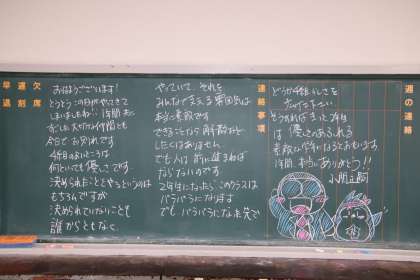 欠席
遅刻
早退
おはようございます!
とうとうこの日がやってきて
しまいましたね…。1年間共に
過ごした大切な仲間とも
今日でお別れです
4組のよいところは
何といっても優しさです
決められたことをやるというのは
もちろんですが
決められていないことも
誰からともなく
やっていて、それを
みんなで支える雰囲気は
本当に素敵です
できることなら解散など
したくはありません
でも人は前に進まねば
ならないのです
2年生になったらこのクラスは
バラバラになります
でもバラバラになった先で
連絡事項
どうか4組らしさを
広げて下さい
そうすれば、きっと2年生
は優しさのあふれる
素敵な学年になるとおもいます
1年間本当にありがとう!!
週の連絡